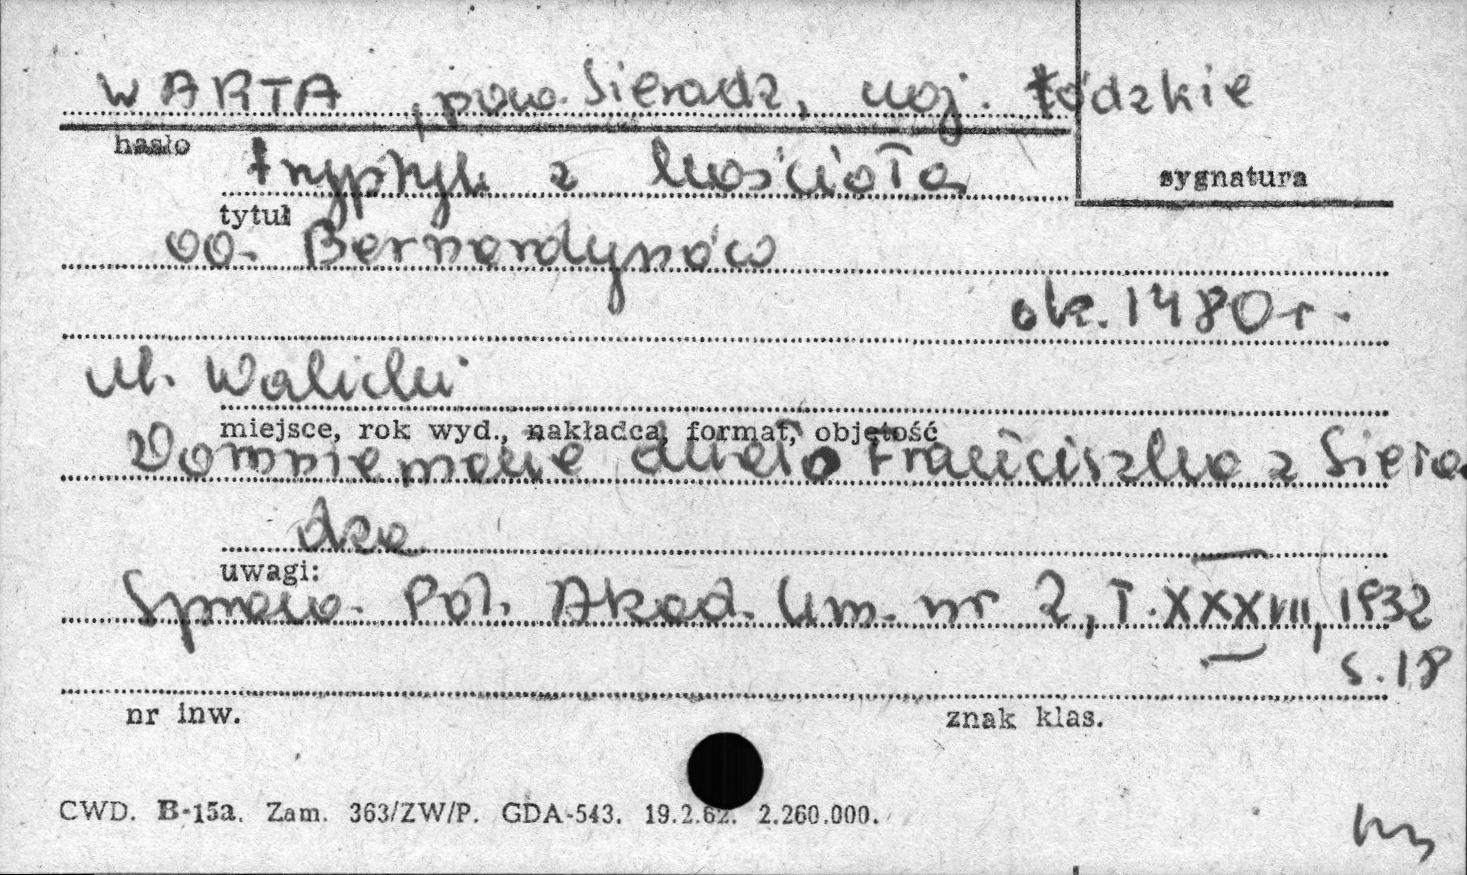 WARTA, pow. Sieradz, woj. Łódzkie
hasło
tryptyk z kościoła
sygnatura
tytuł
oo. Bernardynów
ok. 1480 r.
M. Walicki
miejsce, rok wyd., nakładca, format, objętość
Domniemane dzieło Franciszka z Siera
dza
uwagi:
Spraw. Pol. Akad. Um. nr 2, T. XXXVII, 1932
s. 18
nr inw. znak klas.
CWD. B-15a. Zam. 363/ZW/P. GDA-543. 19.2.62. 2.260.000.